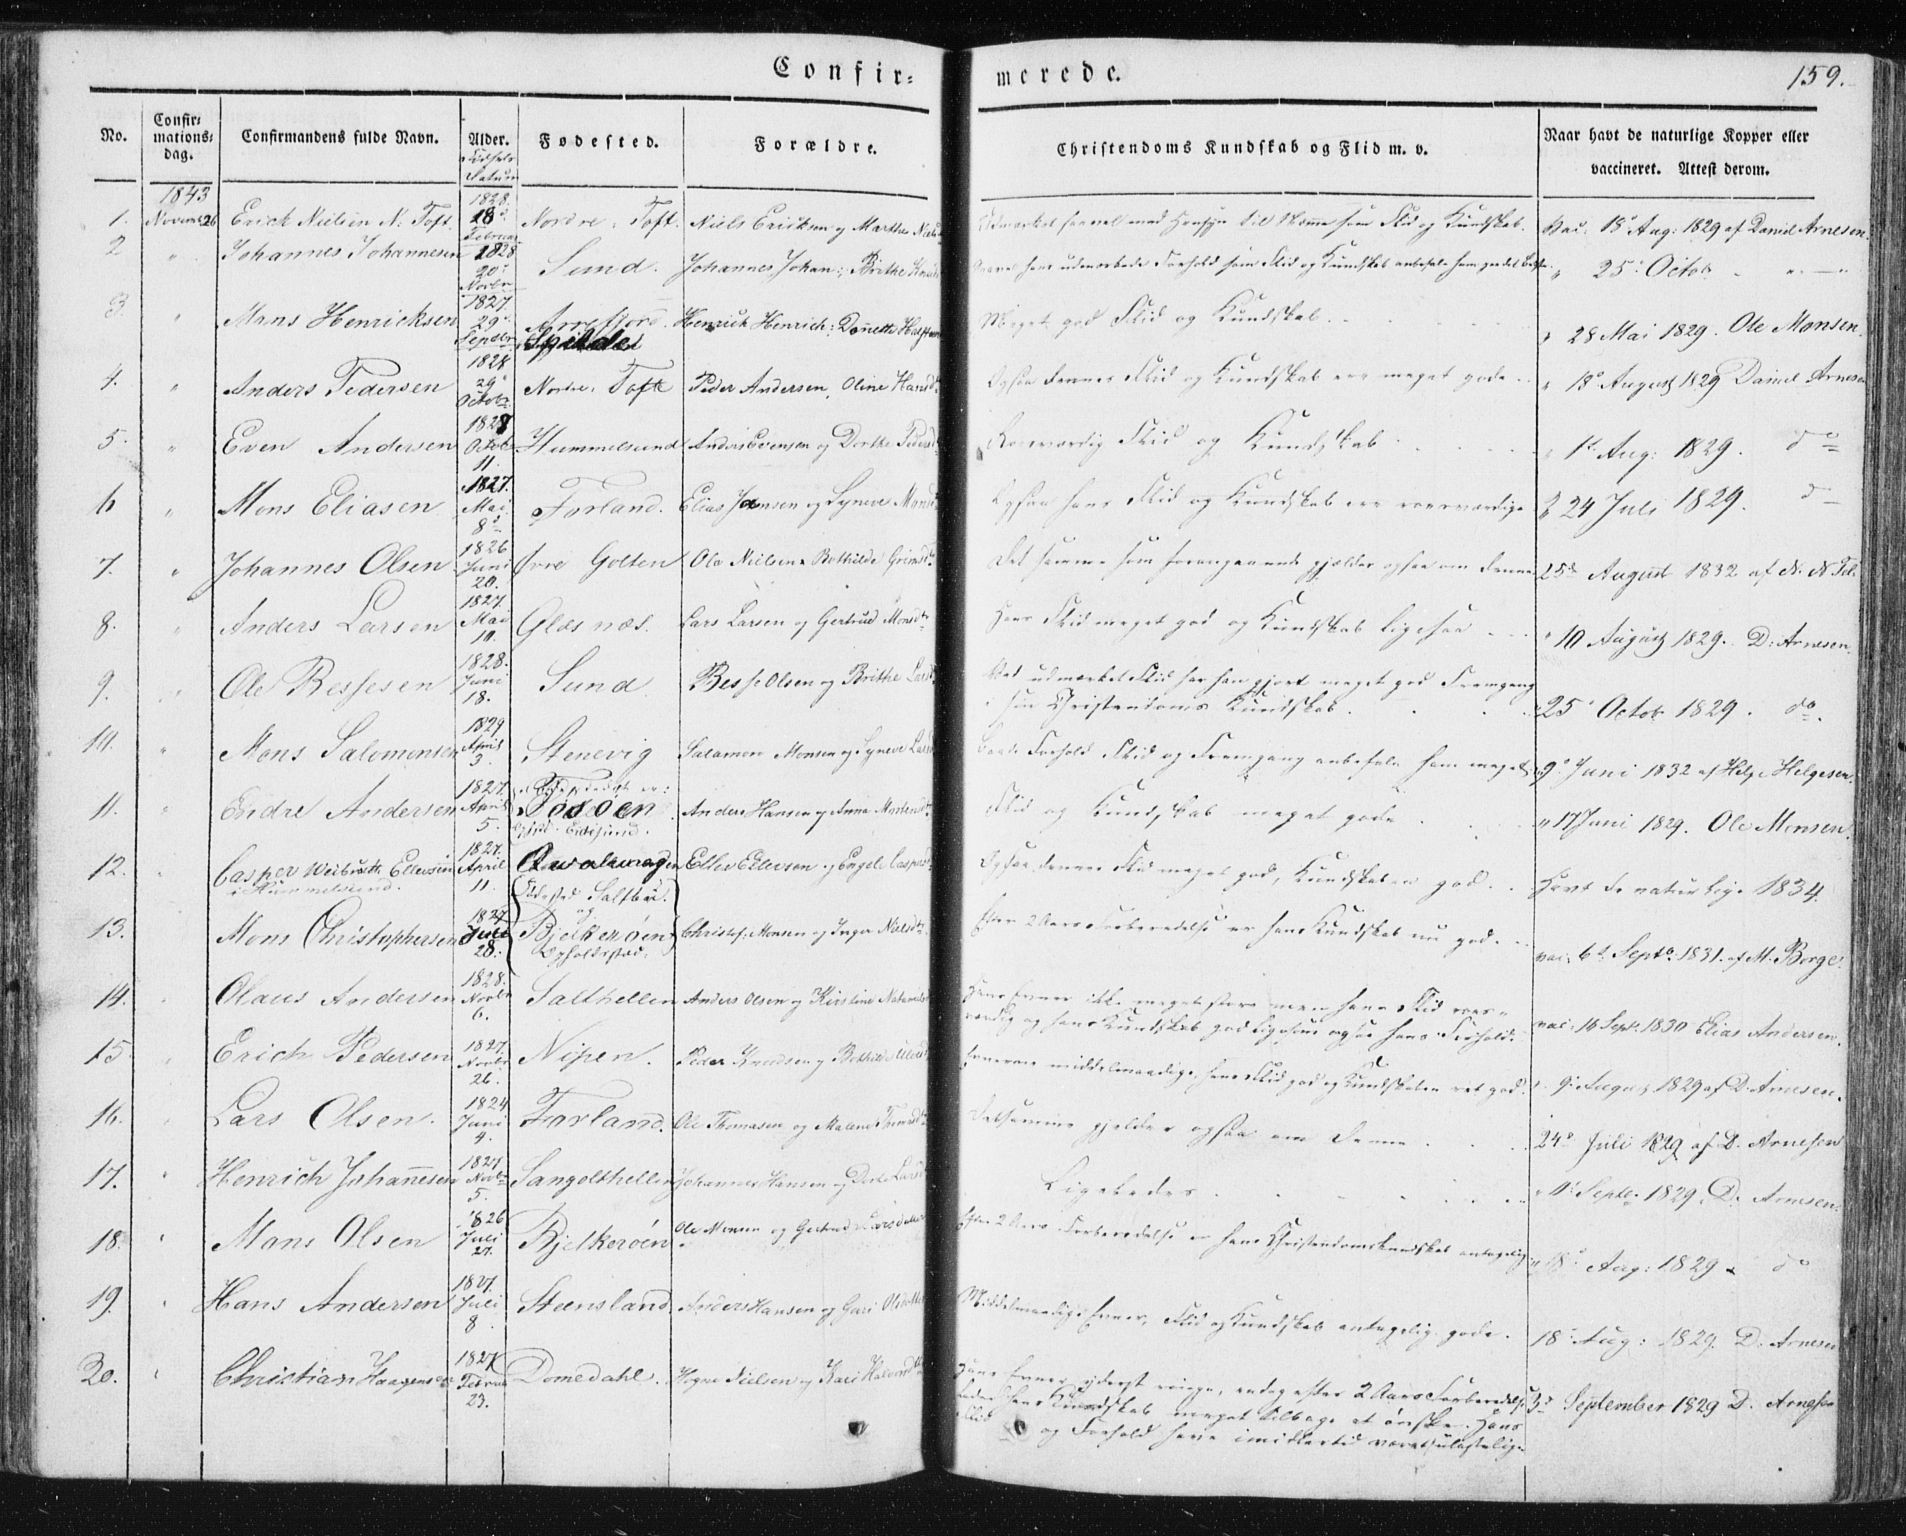 Confir= merede. 159.
No. Confir= mations= dag. Confirmandens fulde Navn. Alder. Fødested. Forældre. Christendoms Kundskab og Flid m. v. Naar havt de naturlige Kopper eller vaccineret. Attest derom.
Fødsels Datum
1843
1. Novemb 26 Erich Nielsen N: Toft. 1828 18d Februar Nordre Toft. Niels Ericksen og Marthe Udmærket saavel med Hensyn til som Flid og Kundskab. Vac. 18d Aug: 1829 af Daniel Arnesen.
2 " Johannes Johannesen 1828 20d Novbr Sund. Johannes Johan: Brithe hans udmærkede Forhold som Flid og Kundskab anbefale ham " 25d Octob " "
3. " Mans Henricksen 1827 29d Septbr Arrefjord. Spilde Henrich Henrich: Meget god Flid og Kundskab. " 28 Mai 1829. Ole Monsen.
4. " Anders Pedersen 1828 29d Octob Nordre. Toft Peder Andersen, Oline Hansd Ogsaa Dennes Flid og Kundskab ere meget gode " 18d August 1829 Daniel Arnesen
5. " Even Andersen 1828 Octob 11. Hummelsund Anders Evensen og Dorthe Pedersd Roesværdig Flid og Kundskab " 1st Aug: 1829. do
6 " Mons Eliasen 1827. Mai 8d Forland. Elias Jansen og Synneve Monsd Ogsaa hans Flid og Kundskab ere roesværdige " 24 Juli 1829. do
7. " Johannes Olsen 1826 Juni 20. Øvre Golten Ole Nielsen Bothilde Grimsd Det samme som foregaaende gjælder ogsaa om Denne 25de August 1832 af N. N.
8. " Anders Larsen 1827. Mai 10. Glesnæs. Lars Larsen og Gertrud Monsd Hans Flid meget god og Kundskab ligesaa " 10 August 1829. D: Arnesen.
9. " Ole Bessesen 1828. Juni 18. Sund. Besse Olsen og Brithe Larsd Ved udmærket Flid har han gjort meget god Fremgang
i sin Christendoms Kundskab. " 25d Octob 1829. do.
10. " Mons Salomonsen 1829 April 3. Stenevig Salamon Monsen og Synneve Larsd Forhold, Flid og Fremgang anbefale ham meget " 9d Juni 1832 af Helge Helgesen.
11. " Endre Andersen 1827. April 5. Fødested er: Tøsøen Eidesund. Anders Hansen og Anna Mortensd Flid og Kundskab meget gode " 17 Juni 1829. Ole Monsen.
12. " Casper Ellersen i Hummelsund. 1827. April 11. Qvalvaag Eller Ellersen og Engel Caspersd Ogsaa dennes Flid meget god, Kundskaben god. Havt de naturlige 1834.
13. " Mons Christophersen 1827 Juli 28. Fødested Saltbu. og Bjelkerøen Opholdssted. Christof: Monsen og Inger Nielsd Efter 2 Aars Forberedelse er hans Kundskab nu god. vac. 6d Septb. 1831. af M. Borge.
14. " Olaus Andersen 1828. Novbr 6. Salthellen Anders Olsen og Kirstine Hans Evner ikke meget store men hans Flid roes-
værdig og hans Kundskab god ligesom ogsaa hans Forhold. vac. 16 Septb 1830 Elias Andersen.
15 " Erich Pedersen 1827. Novbr 26. Nipen. Peder Knudsen og Bothild Evnerne middelmaadige, hans Flid god og Kundskaben ret god. 9d August 1829 af D. Arnesen.
16. " Lars Olsen. 1824 Juni 4. Forland. Ole Thomasen og Malene Detsamme gjelder ogsaa om Denne 24d Juli 1829 af D. Arnesen
17. " Henrich Johannesen 1827 Novbr 5. Sangolthellen Johannes Hansen og Dorte Larsd Ligeledes " 11d Septbr 1829. D: Arnesen.
18. " Mans Olsen 1826 Juli 27. Bjelkerøen Ole Monsen og Gertrud Larsdatter Efter 2 Aars Forberedelse er hans Christendomskundskab antagelig " 18d Aug: 1829 do
19. " Hans Andersen 1827. Juli 8. Steensland Anders Hansen og Guri Olsdatter Middelmaadige Evner, Flid og Kundskab antagelig gode. 18d Aug: 1829. D. Arnesen
20. " Christian Haagensen 1827 Februar 23. Domedahl. Hogne Nielsen og Kari Halvorsd Hans Evner yderst ringe, endog efter 2 Aars Forberedelse
lader hans Kundskab meget tilbage at ønske. Hans 3d September 1829 D. Arnesen
Flid og Forhold have imidlertid været ulastelige